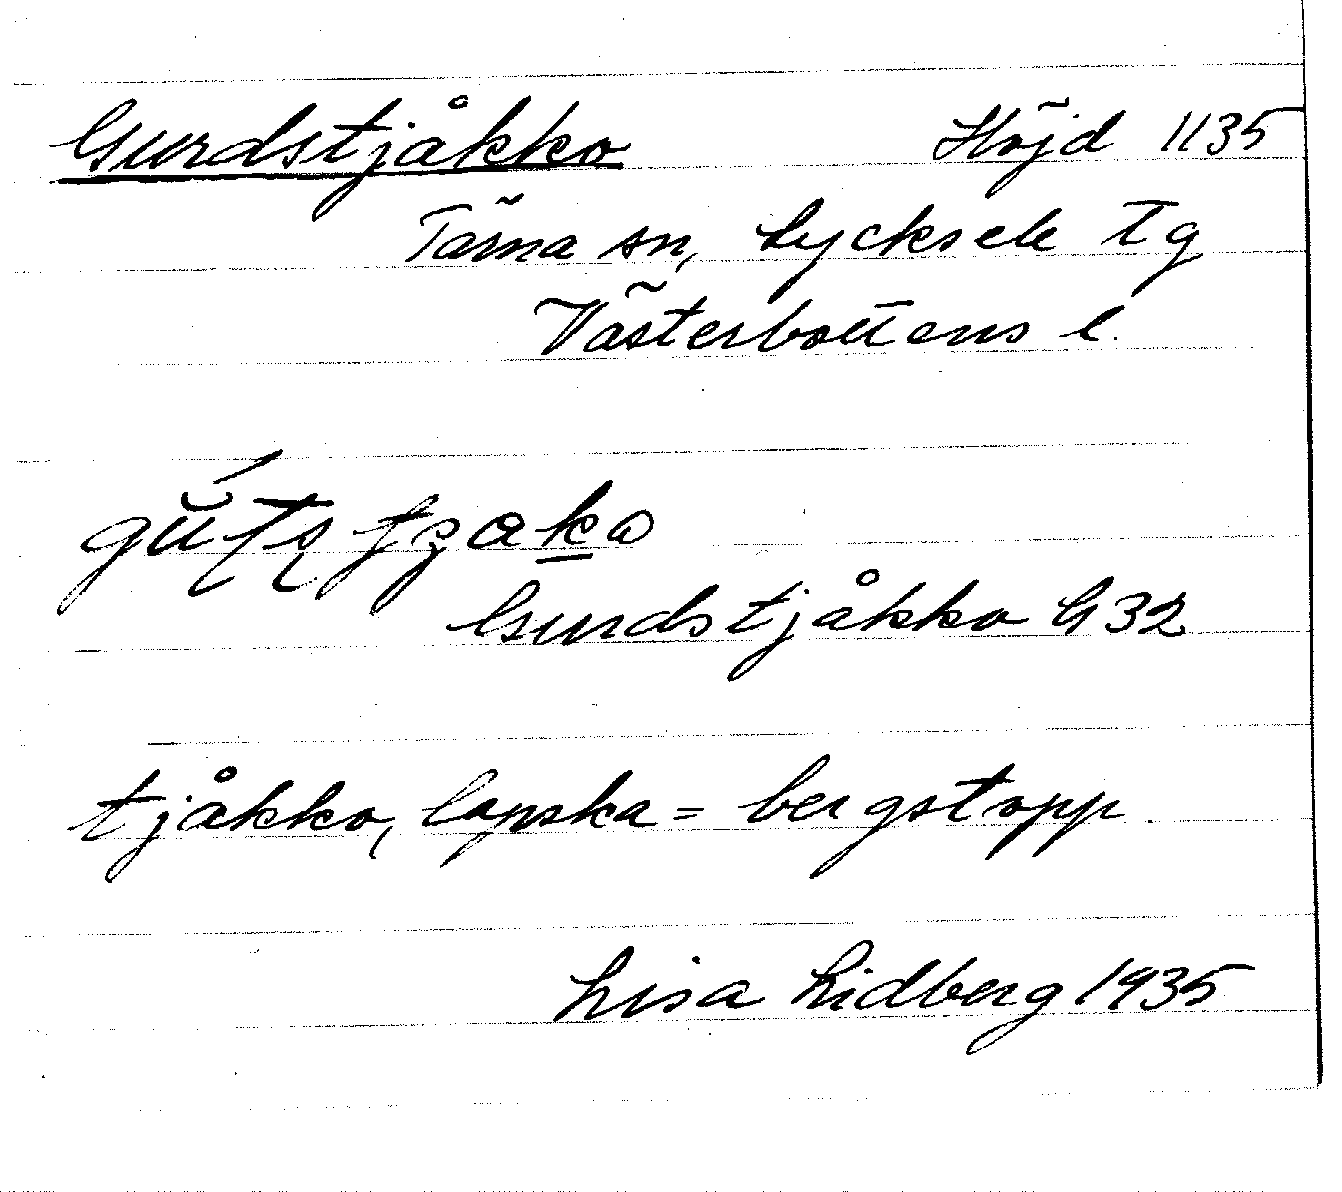 Gurdstjåkko Höjd 1135
Tärna sn, Lycksele tg
Västerbottens l.
Gurdstjåkko G 32
tjåkko, lapska = bergstopp
Lisa Lidberg 1935